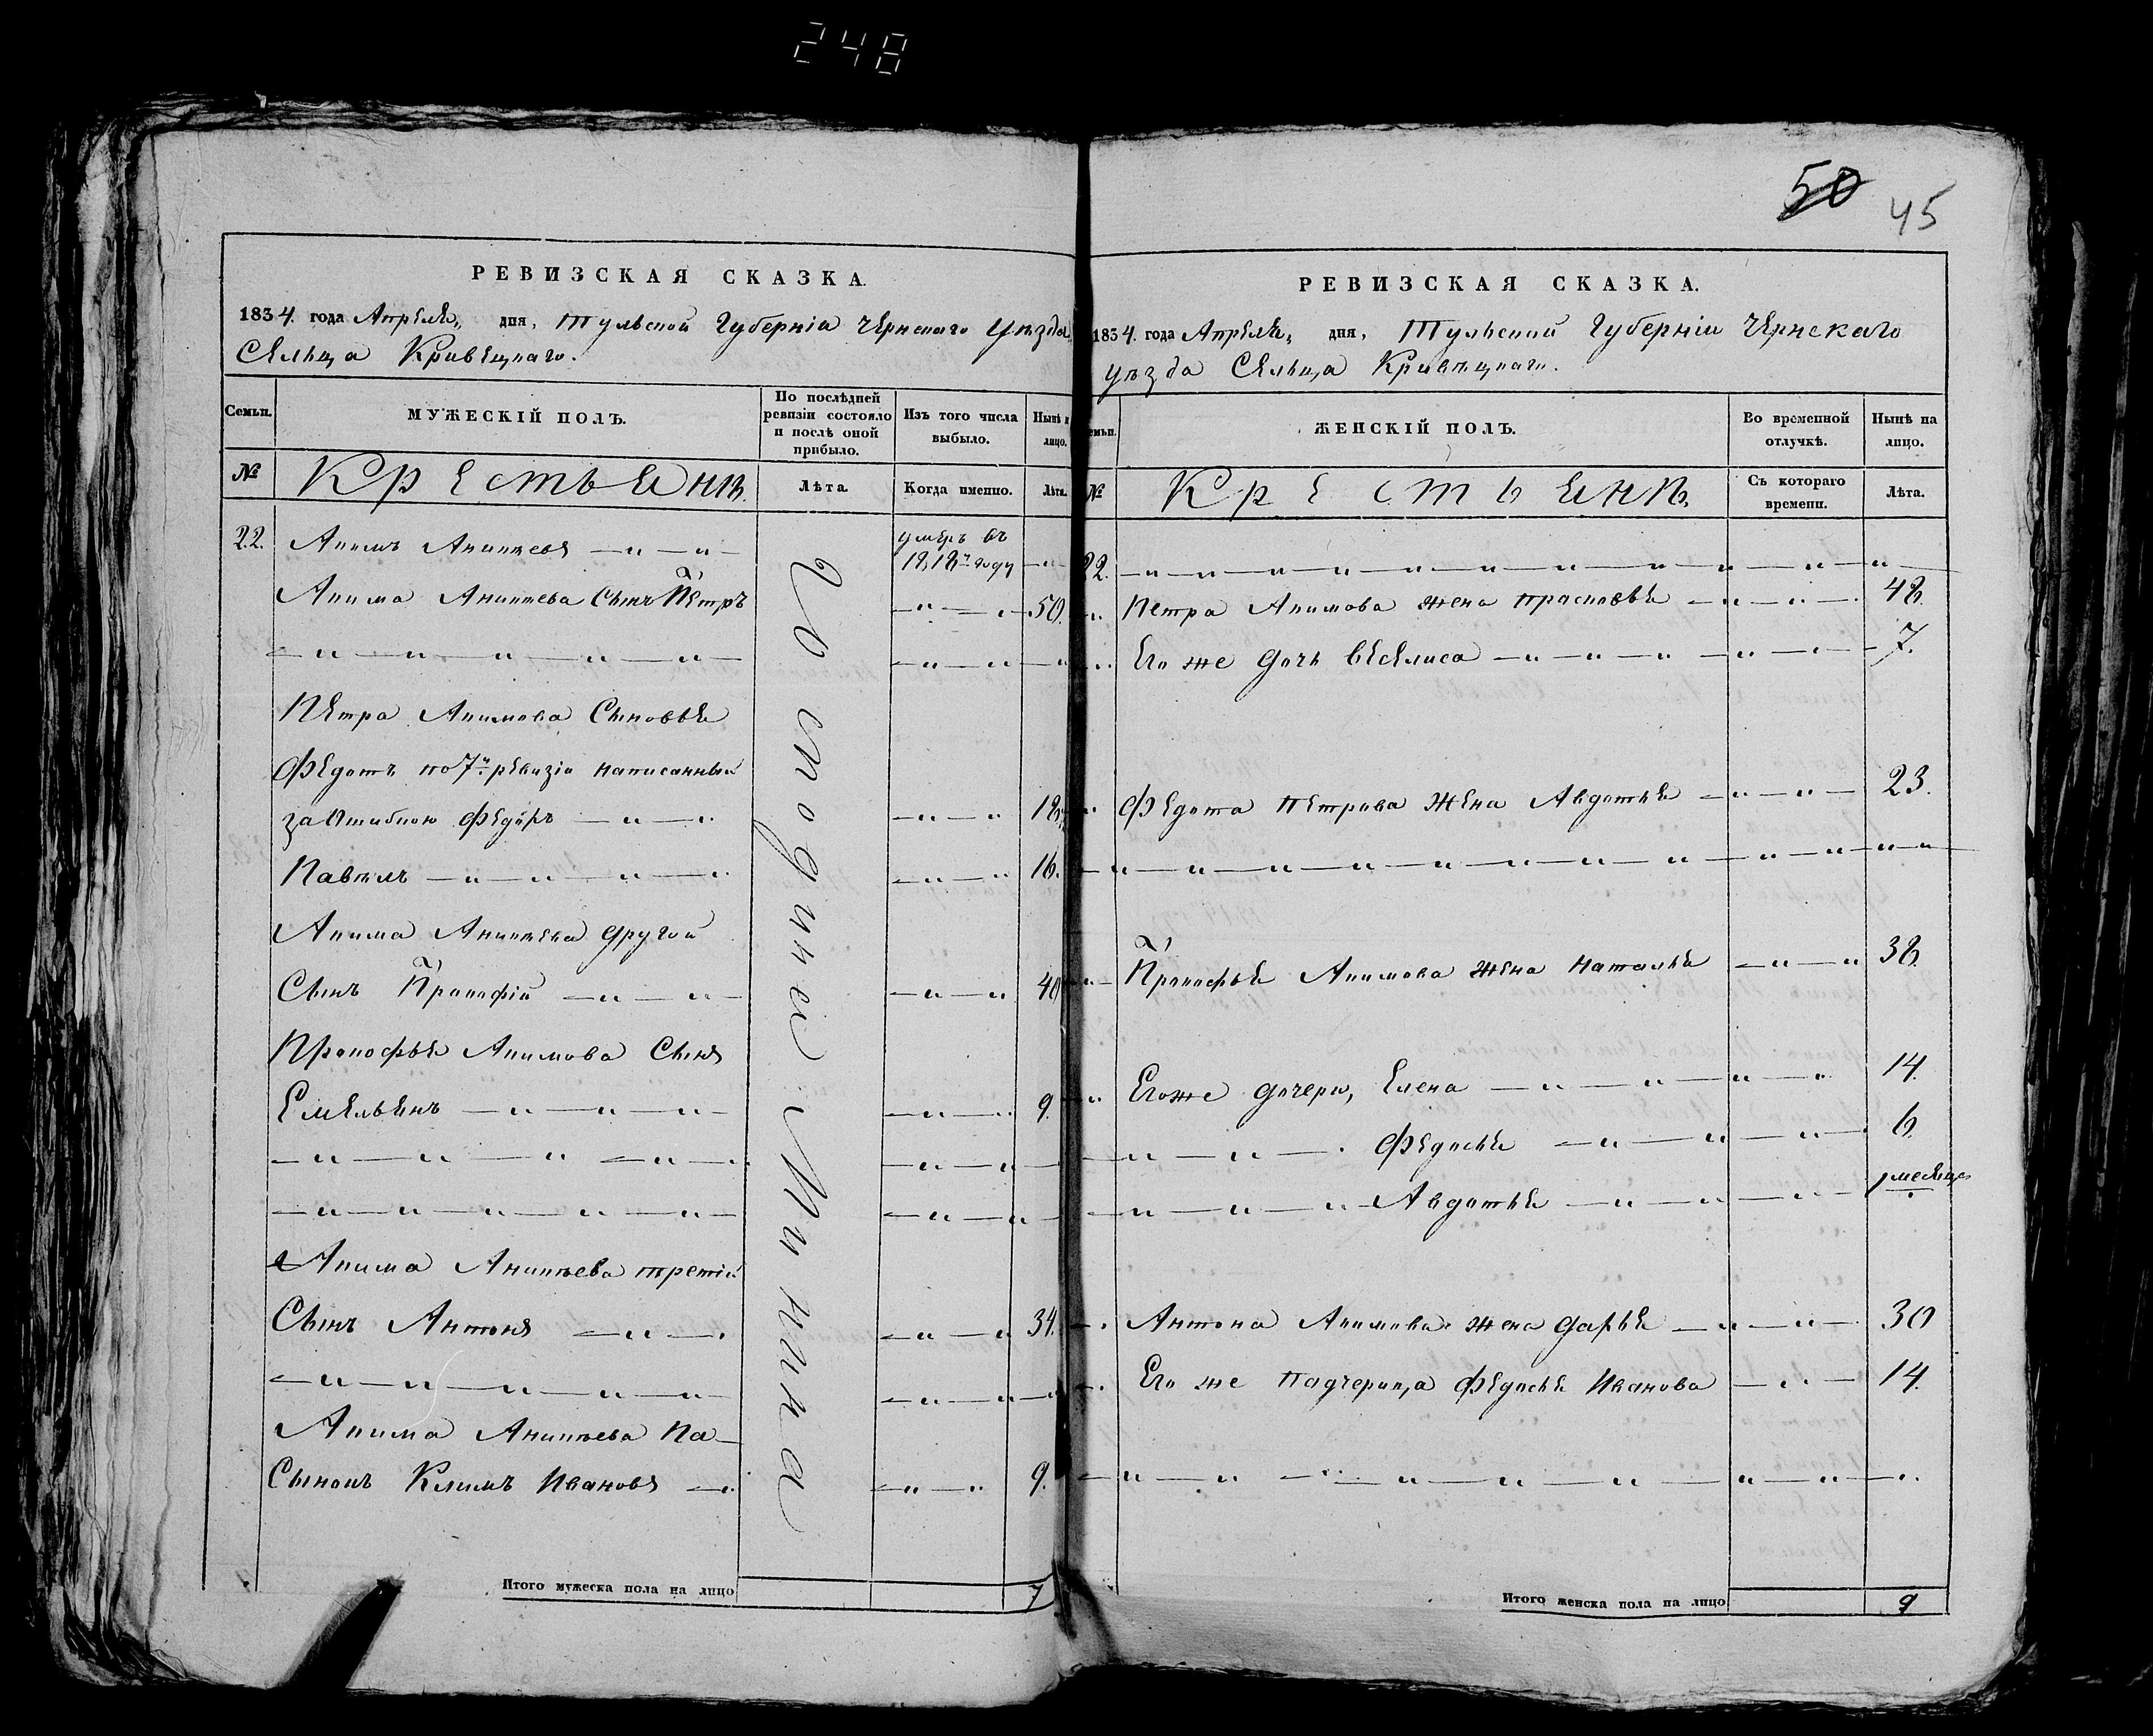 248
50 45
РЕВИЗСКАЯ СКАЗКА.
1834. года Апреля, дня, Тульской Губерніи Чернскаго уѣзда,
Сельца Кривецкаго.
Семьи.
МУЖЕСКІЙ ПОЛЪ.
По послѣдней ревизіи состояло и послѣ оной прибыло.
Изъ того числа выбыло.
Нынѣ лицо.
№
Крестьянъ.
Лѣта.
Когда именно.
Лѣта.
22. Акимъ Аникѣевъ — " — " — умеръ въ
1818м году — "
Акима Аникѣева Сынъ Пётръ — " — " 50.
— " — " — " — " — " — — " — " — "
Пётра Акимова Сыновья
Федотъ по 7й ревизіи написанный
за Ошибкою Федоръ — " — " — " — " 18.
Павелъ — " — " — " — " — " — " 16.
Акима Аникѣева другой
Сынъ Прокофій — " — " — — " — " 40
Прокофья Акимова Сынъ
Емельянъ — " — " — " — — " — " 9.
— " — " — " — " — — " — "
— " — " — " — " — " — — " — "
Акима Аникѣева третій
Сынъ Антонъ — " — . — " — " 34.
— " — " — " — " — " — — " — "
Акима Аникѣева Па-
Сынокъ Климъ Ивановъ — " — " — " 9.
Господина Минина
Итого мужеска пола на лицо 7
РЕВИЗСКАЯ СКАЗКА.
1834. года Апреля, дня, Тульской Губерніи Чернскаго
уѣзда Сельца Кривѣцкаго.
ЖЕНСКІЙ ПОЛЪ.
Во временной отлучкѣ.
Нынѣ на лицо.
№
Крестьянъ.
Съ котораго времени.
Лѣта.
22. — " — " — " — " — " — " — " — " — " — " — "
" Петра Акимова жена Прасковья — " — " — 48.
" Его же дочь Веклиса — " — " — " — " — " — 7.
" Федота Петрова Жена Авдотья — " — " — 23.
— " — " — " — " — " — " — " — " — " — " — " — "
" Прокофья Акимова жена Наталья — " — " 38.
" Его же дочери, Елена — " — " — " — " 14.
— " — " — . Федосья — " — " — " — 6.
— " — " — " — Авдотья — " — " — " — 1 месяца
. Антона Акимова жена Дарья — " — " — 30
. Его же падчерица Федосья Иванова — " — 14.
— " — " — " — " — " — " — " — " — " — "
Итого женска пола на лицо 9